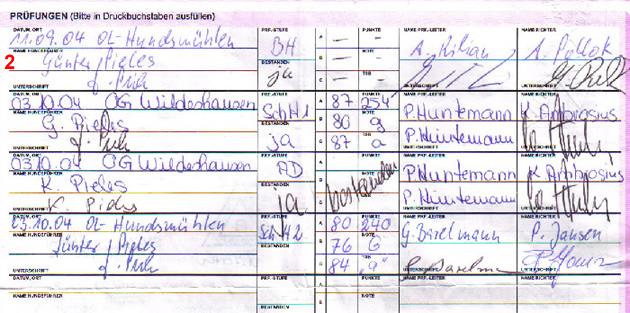 PRÜFUNGEN (Bitte in Druckbuchstaben ausfüllen)
DATUM, ORT PRF.-STUFE A NOTE NAME PRF.-LEITER NAME RICHTER
11.09.04 OL-Hundsmühlen BH A — — A. Kilian A. Pollok
NAME HUNDEFÜHRER BESTANDEN B NOTE
2 Günter Pieles ja B — —
UNTERSCHRIFT C TSB UNTERSCHRIFT UNTERSCHRIFT
C — —
DATUM, ORT PRF.-STUFE NAME PRF.-LEITER NAME RICHTER
03.10.04 OG Wildeshausen SchH1 87 254 P. Huntemann K. Ambrosius
NAME HUNDEFÜHRER BESTANDEN NOTE
G. Pieles ja 80 g P. Huntemann
UNTERSCHRIFT TSB UNTERSCHRIFT UNTERSCHRIFT
87 a
DATUM, ORT PRF.-STUFE NAME PRF.-LEITER NAME RICHTER
03.10.04 OG Wildeshausen AD bestanden P. Huntemann K. Ambrosius
NAME HUNDEFÜHRER BESTANDEN
K. Pieles ja P. Huntemann
UNTERSCHRIFT UNTERSCHRIFT UNTERSCHRIFT
K. Pieles
DATUM, ORT PRF.-STUFE NAME PRF.-LEITER NAME RICHTER
23.10.04 OL-Hundsmühlen SchH2 80 240 P. Jansen
NAME HUNDEFÜHRER BESTANDEN NOTE
Günter Pieles 76 G
UNTERSCHRIFT TSB UNTERSCHRIFT UNTERSCHRIFT
84 "a"
DATUM, ORT PRF.-STUFE A NOTE NAME PRF.-LEITER NAME RICHTER
NAME HUNDEFÜHRER BESTANDEN B NOTE